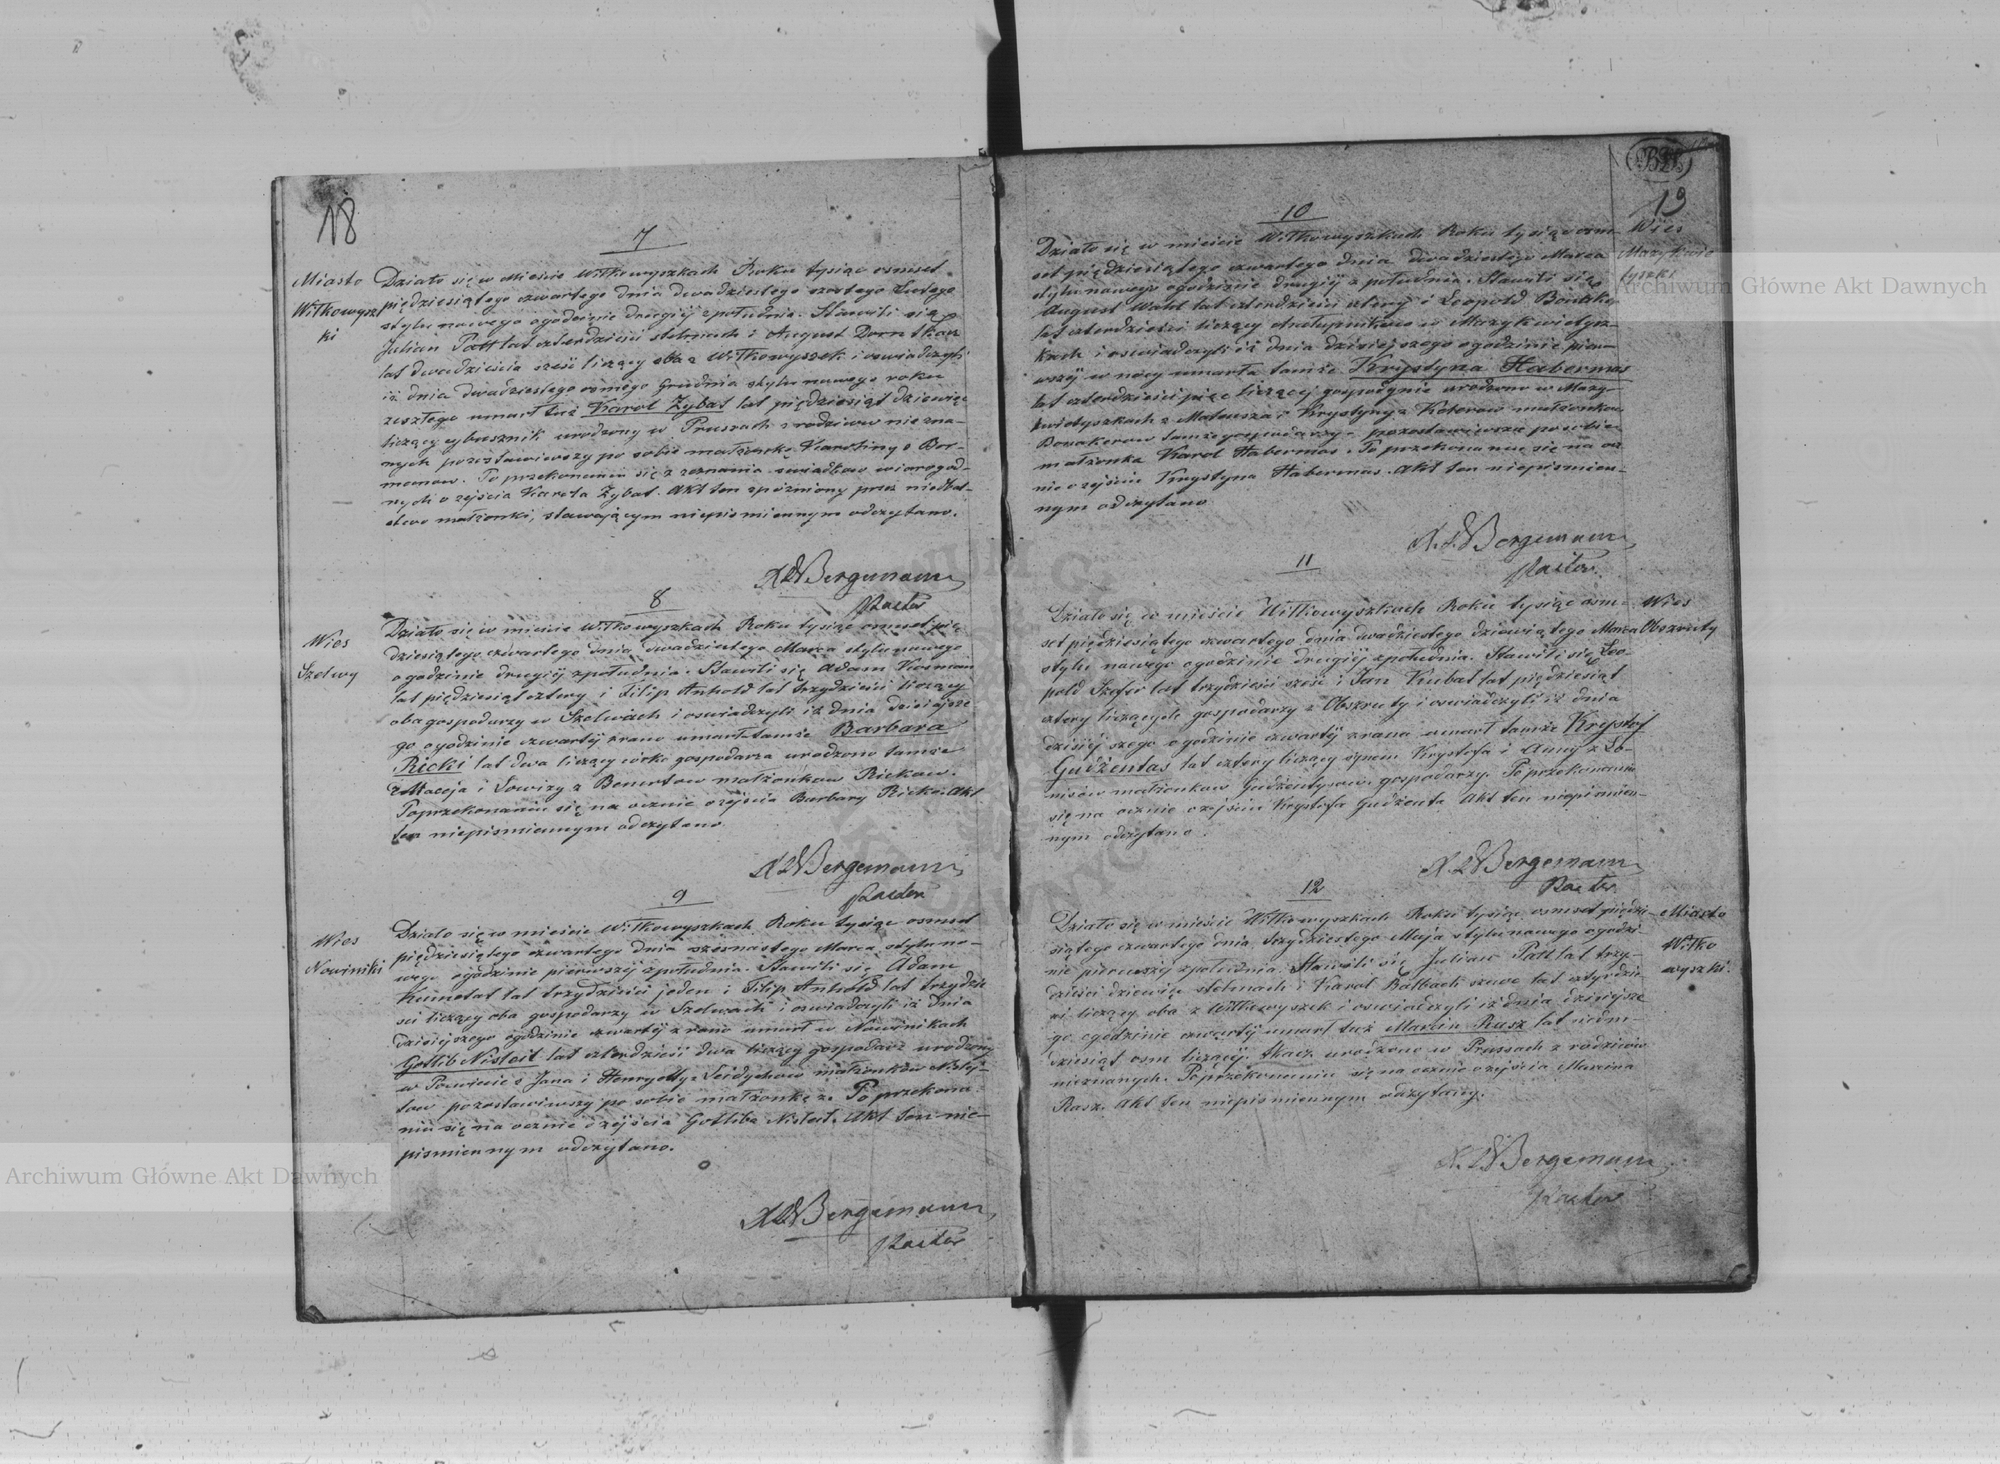 18
7
Miasto
Wiłkowysz
ki
Działo się w Mieście Wiłkowyszkach Roku tysiąc osmset
piędziesiątego czwartego dnia dwadziestego szostego Lutego
stylu nowego o godzinie drugiej z południa. Stawili się
Julian Patt lat czterdzieści stelmach i August Dorn tkacz
lat dwadzieścia sześć liczący oba z Wiłkowyszek i oswiadczyli
iż dnia dwadziestego osmego Grudnia stylu nowego roku
zeszłego umarł tuż Karol Zybat lat piędziesiąt dziewięc
liczący urodzony w Prussach z rodziców niezna-
nych pozostawiwszy po sobie małżonkę Karolinę z Bor-
manow. Po przekonaniu się z zeznania swiadkow wiarogod-
nych o zejściu Karola Zybat. Akt ten spóźniony przez niedbal-
stwo małżonki, stawającym niepismiennym odczytano.
X L Bergemann
Pastor
8
Wies
Szelwy
Działo się w mieście Wiłkowyszkach Roku tysiąc osmset pię
dziesiątego czwartego dnia dwadziestego Marca stylu nowego
o godzinie drugiej z południa. Stawili się Adam Kosman
lat piędziesiąt cztery i Filip Anhold lat trzydzieści liczący
oba gospodarzy w Szelwach i oswiadczyli iż dnia dzisiejsze
go o godzinie czwartej z rana umarła tamże Barbara
Ricki lat dwa licząca córka gospodarza urodzona tamże
z Macieja i Lowizy z małżonkow Rickow.
Po przekonaniu się na ocznie o zejściu Barbary Ricke. Akt
ten niepismiennym odczytano
X L Bergemann
Pastor
9
Wies
Nowiniki
Działo się w mieście Wiłkowyszkach Roku tysiąc osmset
piędziesiątego czwartego dnia szesnastego Marca stylu no-
wego o godzinie pierwszej z południa. Stawili się Adam
Kumetat lat trzydzieści jeden i Filip Anhold lat trzydzie
sci liczący oba gospodarzy w Szelwach i oswiadczyli iż dnia
dzisiejszego o godzinie czwartej z rana umarł w Nowinikach
Gotlib Nisleit lat czterdzieści dwa liczący gospodarz urodzony
w z Jana i Henryetty z małżonkow Nislej-
tow pozostawiwszy po sobie małżonkę z. Po przekona
niu się na ocznie o zejściu Gotliba Nisleit. Akt ten nie-
pismiennym odczytano.
X L Bergemann
Pastor
19
10
Wies
Mazykwie
tyszki
Działo się w mieście Wiłkowyszkach Roku tysiąc osm-
set piędziesiątego czwartego dnia dwadziestego Marca
stylu nowego o godzinie drugiej z południa. Stawili się
August Wahl lat czterdzieści cztery i Leopold
lat czterdzieści liczący chałupnikow w Mazykwietysz-
kach i oswiadczyli iż dnia dzisiejszego o godzinie pier-
wszej w nocy umarła tamże Krystyna Habermas
lat czterdzieści pięc licząca gospodynie urodzona w Mazy-
kwietyszkach z Mateusza i Krystyny z małżonkow
tamże gospodarzy pozostawiwszi po sobie
małżonka Karol Habermas. Po przekonaniu się na ocz
nie o zejściu Krystyna Habermas. Akt ten niepismien-
nym odczytano
X. L Bergemann
Pastor
11
Wies
Obszruty
Działo się w mieście Wiłkowyszkach Roku tysiąc osm-
set piędziesiątego czwartego dnia dwadziestego dziewiątego Marca
stylu nowego o godzinie drugiej z południa. Stawili się Leo-
pold Szefer lat trzydzieści sześć i Jan Kubat lat piędziesiąt
cztery liczących gospodarzy z Obszruty i oswiadczyli iż dnia
dzisiejszego o godzinie czwartej z rana umarł tamże Krystof
Gudżentas lat cztery liczący synem Krystofa i Anny z Lo-
nisow małżonkow Gudżentysow gospodarzy. Po przekonaniu
się na ocznie o zejściu Krystofa Gudżenta Akt ten niepismien-
nym odczytano.
X. L Bergemann
Pastor
12
Miasto
Wiłko
wyszki
Działo się w mieście Wiłkowyszkach Roku tysiąc osmset piędzie
siątego czwartego dnia trzydziestego Maja stylu nowego o godzi
nie pierwszej z południa. Stawili się Julian Patt lat trzy-
dzieści dziewięć stelmach i Karol Balbach szewc lat cztyrdzie
ści liczący oba z Wiłkowyszek i oswiadczyli iż dnia dzisiejsze
go o godzinie czwartej umarł tuż Marcin Rusz lat siedm-
dziesiąt osm liczący. tkacz urodzono w Prussach z rodzicow
nieznanych. Po przekonaniu się na ocznie o zejściu Marcina
Rasz. Akt ten niepismiennym odczytany.
X. L Bergemann
Pastor
Archiwum Główne Akt Dawnych
Archiwum Główne Akt Dawnych